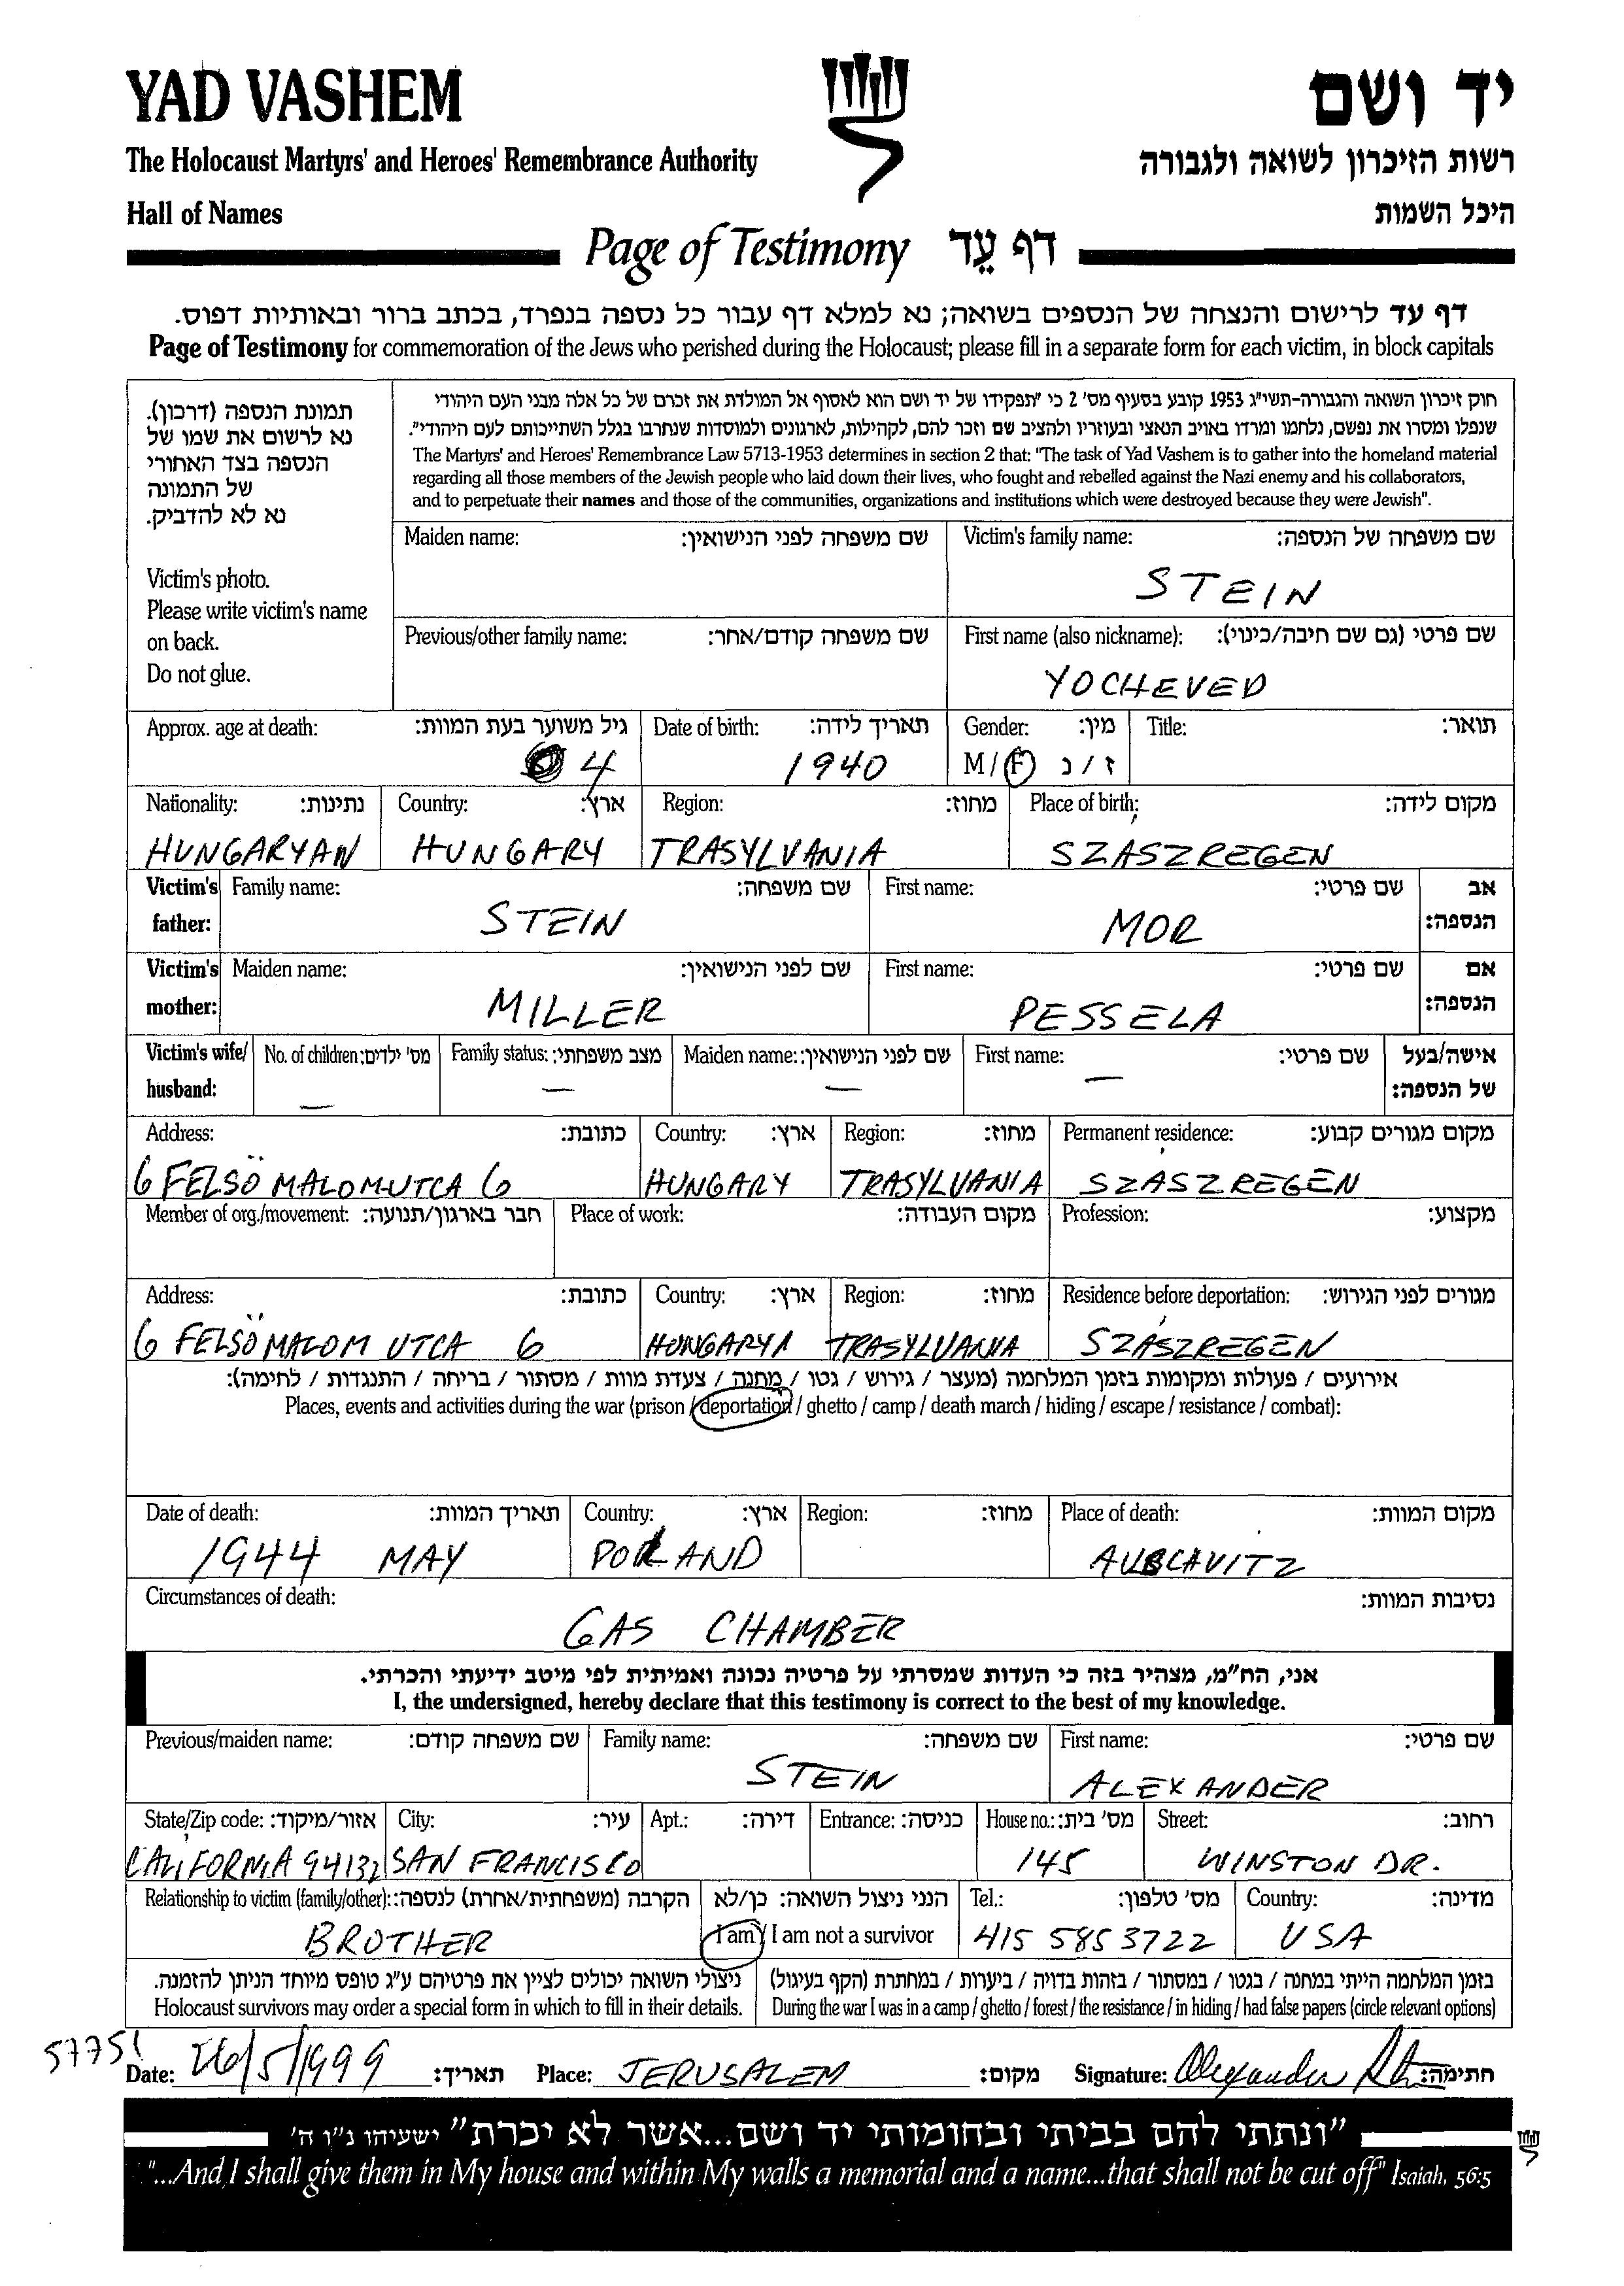 YAD VASHEM
יד ושם
The Holocaust Martyrs' and Heroes' Remembrance Authority
רשות הזיכרון לשואה ולגבורה
Hall of Names
היכל השמות
Page of Testimony דף עֵד
דף עד לרישום והנצחה של הנספים בשואה; נא למלא דף עבור כל נספה בנפרד, בכתב ברור ובאותיות דפוס.
Page of Testimony for commemoration of the Jews who perished during the Holocaust; please fill in a separate form for each victim, in block capitals
תמונת הנספה (דרכון).
נא לרשום את שמו של
הנספה בצד האחורי
של התמונה
נא לא להדביק.
Victim's photo.
Please write victim's name
on back.
Do not glue.
חוק זיכרון השואה והגבורה-תשי"ג 1953 קובע בסעיף מס' 2 כי "תפקידו של יד ושם הוא לאסוף אל המולדת את זכרם של כל אלה מבני העם היהודי
שנפלו ומסרו את נפשם, נלחמו ומרדו באויב הנאצי ובעוזריו ולהציב שם וזכר להם, לקהילות, לארגונים ולמוסדות שנחרבו בגלל השתייכותם לעם היהודי".
The Martyrs' and Heroes' Remembrance Law 5713-1953 determines in section 2 that: "The task of Yad Vashem is to gather into the homeland material
regarding all those members of the Jewish people who laid down their lives, who fought and rebelled against the Nazi enemy and his collaborators,
and to perpetuate their names and those of the communities, organizations and institutions which were destroyed because they were Jewish".
Maiden name: שם משפחה לפני הנישואין:
Victim's family name: שם משפחה של הנספה:
STEIN
Previous/other family name: שם משפחה קודם/אחר:
First name (also nickname): שם פרטי (גם שם חיבה/כינוי):
YOCHEVED
Approx. age at death: גיל משוער בעת המוות:
4
Date of birth: תאריך לידה:
1940
Gender: מין:
M/F ז/נ
Title: תואר:
Nationality: נתינות:
HUNGARYAN
Country: ארץ:
HUNGARY
Region: מחוז:
TRASYLVANIA
Place of birth: מקום לידה:
SZASZREGEN
Victim's father:
Family name: שם משפחה:
STEIN
First name: שם פרטי:
MOR
אב הנספה:
Victim's mother:
Maiden name: שם לפני הנישואין:
MILLER
First name: שם פרטי:
PESSELA
אם הנספה:
Victim's wife/ husband:
No. of children: מס' ילדים:
—
Family status: מצב משפחתי:
—
Maiden name: שם לפני הנישואין:
—
First name: שם פרטי:
—
אישה/בעל של הנספה:
Address: כתובת:
6 FELSÖ MALOM UTCA 6
Country: ארץ:
HUNGARY
Region: מחוז:
TRASYLVANIA
Permanent residence: מקום מגורים קבוע:
SZÁSZREGEN
Member of org./movement: חבר בארגון/תנועה:
Place of work: מקום העבודה:
Profession: מקצוע:
Address: כתובת:
6 FELSÖ MALOM UTCA 6
Country: ארץ:
HUNGARY
Region: מחוז:
TRASYLVANIA
Residence before deportation: מגורים לפני הגירוש:
SZÁSZREGEN
אירועים / פעולות ומקומות בזמן המלחמה (מעצר / גירוש / גטו / מחנה / צעדת מוות / מסתור / בריחה / התנגדות / לחימה):
Places, events and activities during the war (prison / deportation / ghetto / camp / death march / hiding / escape / resistance / combat):
Date of death: תאריך המוות:
1944 MAY
Country: ארץ:
POLAND
Region: מחוז:
Place of death: מקום המוות:
AUSCAVITZ
Circumstances of death: נסיבות המוות:
GAS CHAMBER
אני, הח"מ, מצהיר בזה כי העדות שמסרתי על פרטיה נכונה ואמיתית לפי מיטב ידיעתי והכרתי.
I, the undersigned, hereby declare that this testimony is correct to the best of my knowledge.
Previous/maiden name: שם משפחה קודם:
Family name: שם משפחה:
STEIN
First name: שם פרטי:
ALEXANDER
State/Zip code: אזור/מיקוד:
CALIFORNIA 94132
City: עיר:
SAN FRANCISCO
Apt.: דירה:
Entrance: כניסה:
House no.: מס' בית:
145
Street: רחוב:
WINSTON DR.
Relationship to victim (family/other): הקרבה (משפחתית/אחרת) לנספה:
BROTHER
הנני ניצול השואה: כן/לא
I am / I am not a survivor
Tel.: מס' טלפון:
415 585 3722
Country: מדינה:
USA
ניצולי השואה יכולים לציין את פרטיהם ע"ג טופס מיוחד הניתן להזמנה.
Holocaust survivors may order a special form in which to fill in their details.
בזמן המלחמה הייתי במחנה / בגטו / במסתור / בזהות בדויה / ביערות / במחתרת (הקף בעיגול)
During the war I was in a camp / ghetto / forest / the resistance / in hiding / had false papers (circle relevant options)
Date: 26/5/1999 תאריך: Place: JERUSALEM מקום: Signature: Alexander חתימה:
"ונתתי להם בביתי ובחומותי יד ושם...אשר לא יכרת" ישעיהו נ"ו ה'
"...And I shall give them in My house and within My walls a memorial and a name...that shall not be cut off" Isaiah, 56:5